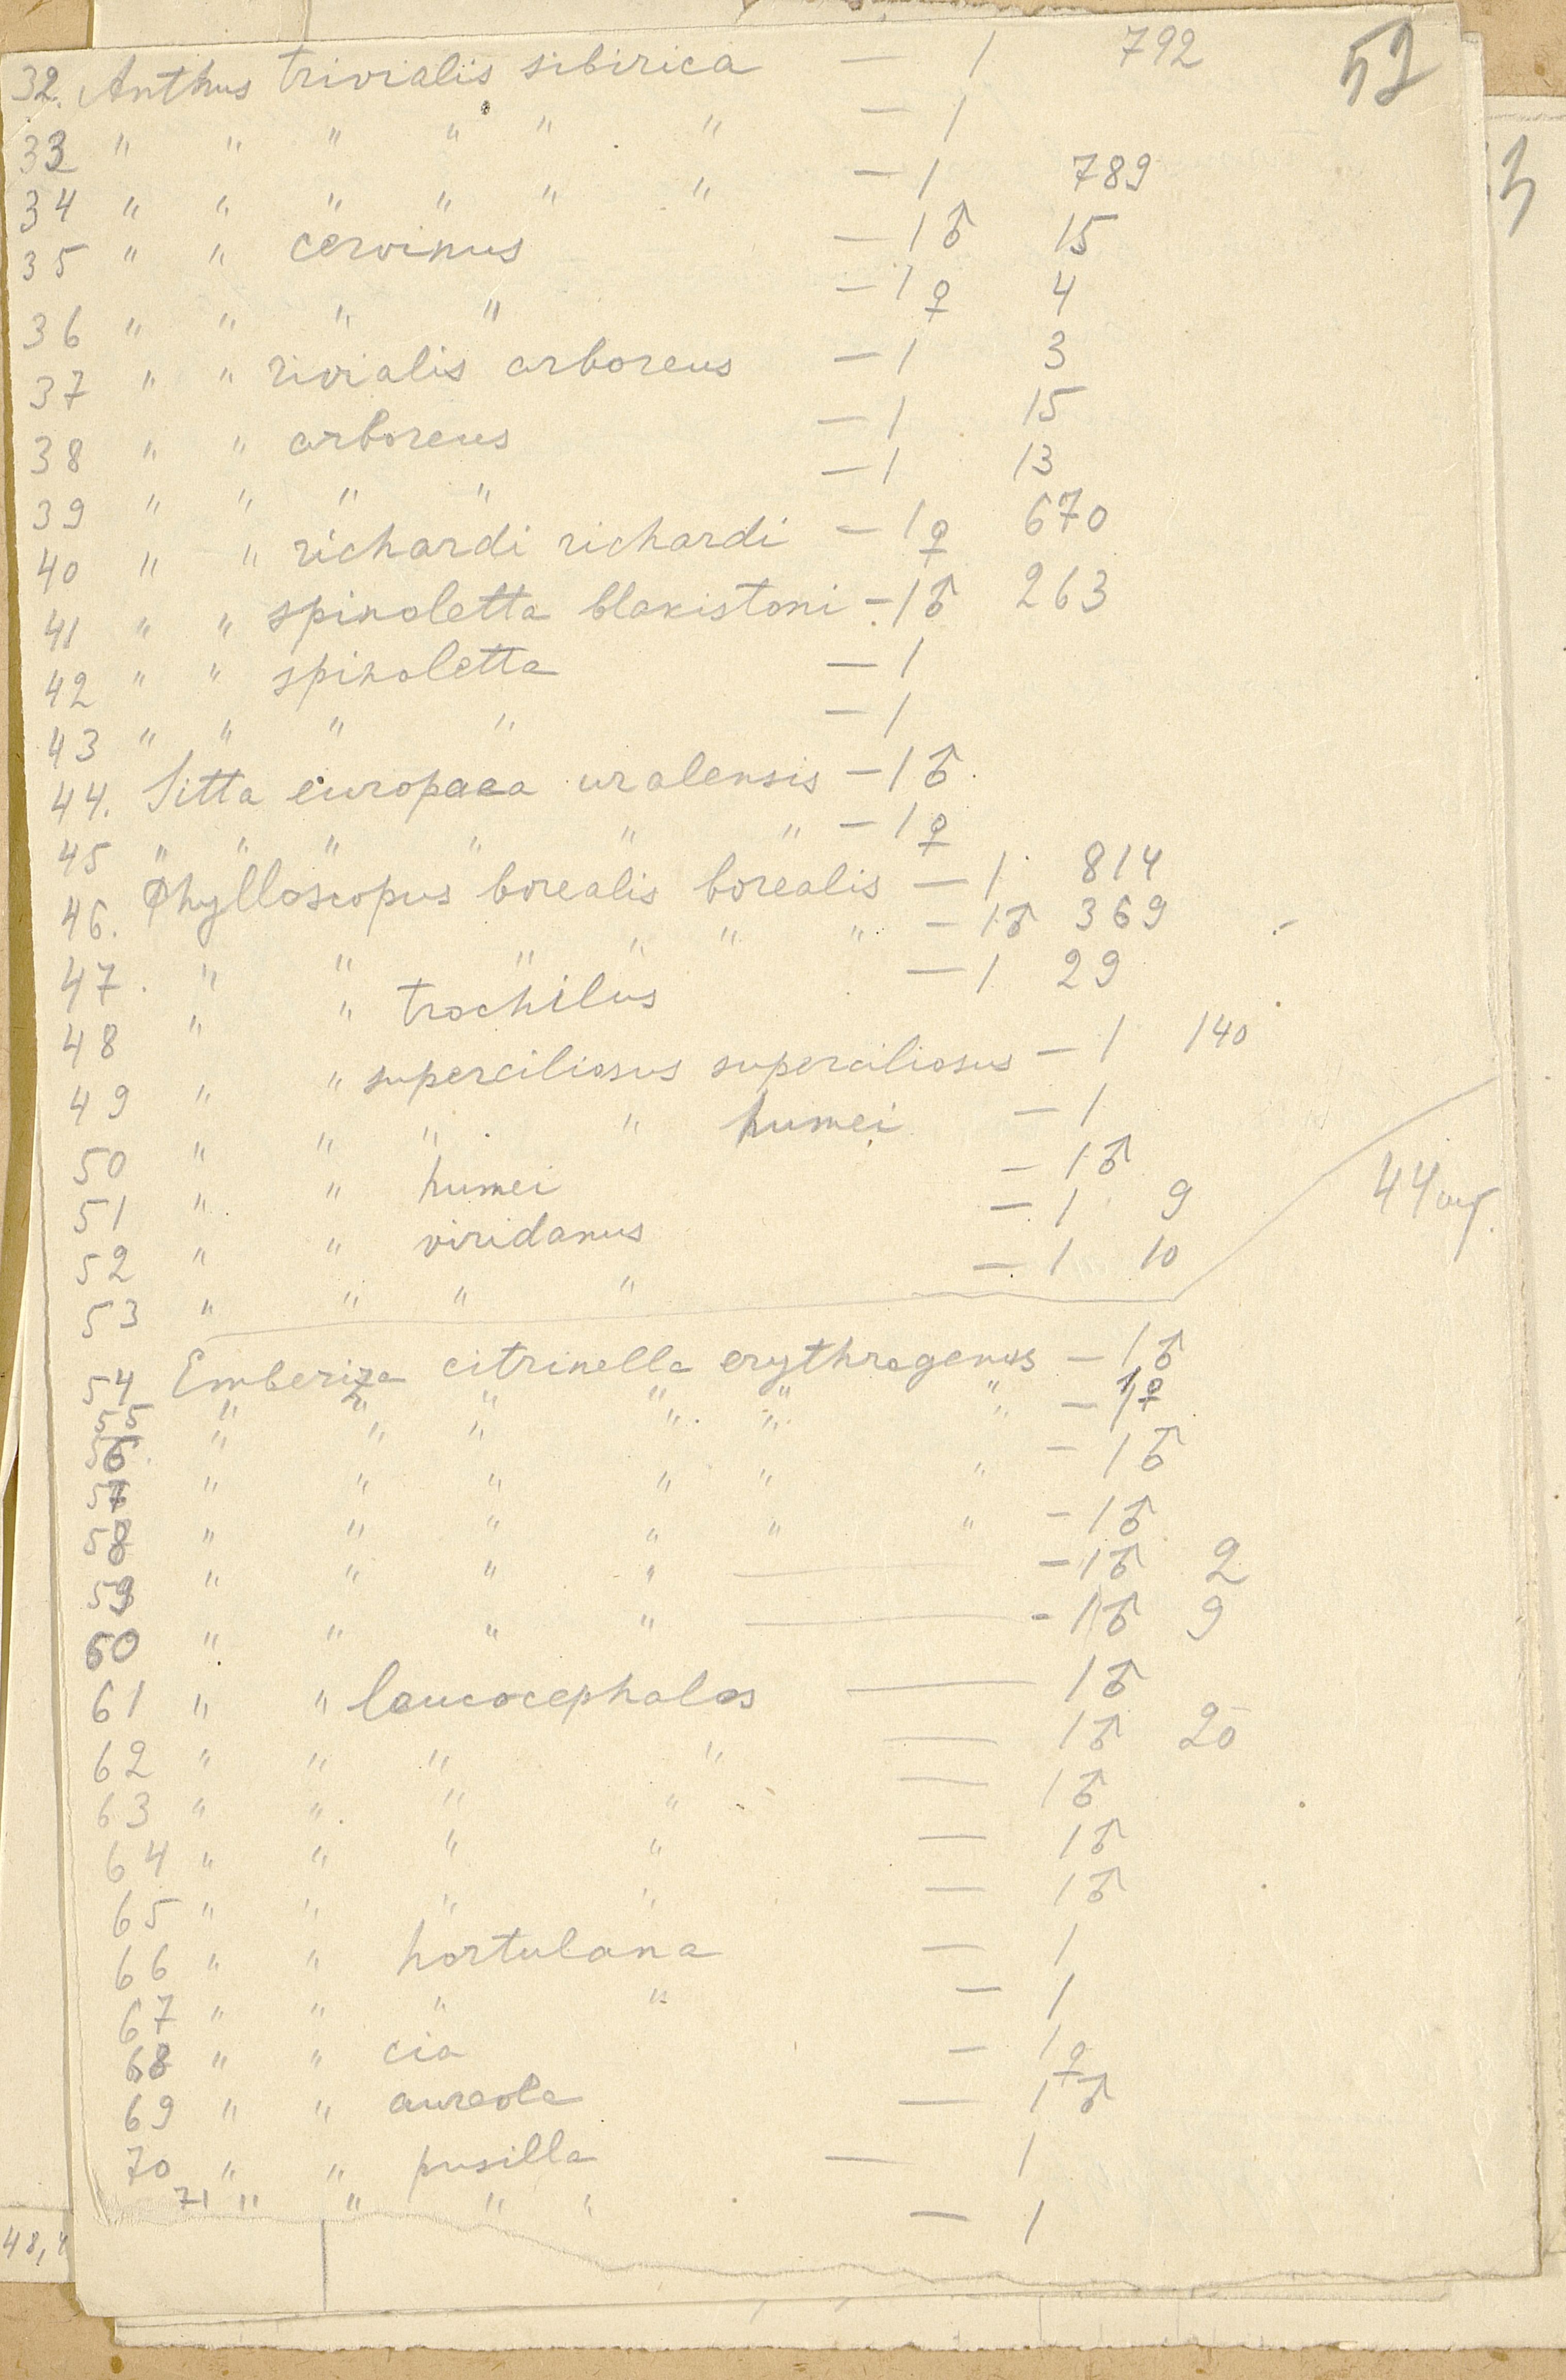 52
32. Anthus trivialis sibirica — 1 792
33 " " " " " " — 1
34 " " " " " " — 1 789
35 " " cervinus — 1 ♂ 15
36 " " " " — 1 ♀ 4
37 " " rivialis arboreus — 1 3
38 " " arboreus — 1 15
39 " " " " — 1 13
40 " " richardi richardi — 1 ♀ 670
41 " " spinoletta blakistoni — 1 ♂ 263
42 " " spinoletta — 1
43 " " " " — 1
44. Sitta europaea uralensis — 1 ♂
45 " " " " " " — 1 ♀
46. Phylloscopus borealis borealis — 1 814
47. " " " " " " — 1 ♂ 369
48 " " trochilus — 1 29
49 " " superciliosus superciliosus — 1 140
50 " " " " humei — 1
51 " " humei — 1 ♂
52 " " viridanus — 1 9
53 " " " " — 1 10
54 Emberiza citrinella erythrogenus — 1 ♂
55 " " " " " " — 1 ♀
56. " " " " " — 1 ♂
57 " " " " " "
58 " " " " " " — 1 ♂
59 " " " " — 1 ♂ 2
60 " " " " — 1 ♂ 9
61 " " leucocephalos — 1 ♂
62 " " " " — 1 ♂ 20
63 " " " " — 1 ♂
64 " " " " — 1 ♂
65 " " " " — 1 ♂
66 " " hortulana — 1
67 " " " " — 1
68 " " cia — 1 ♀
69 " " aureola — 1 ♂
70 " " pusilla — 1
71 " " " " — 1